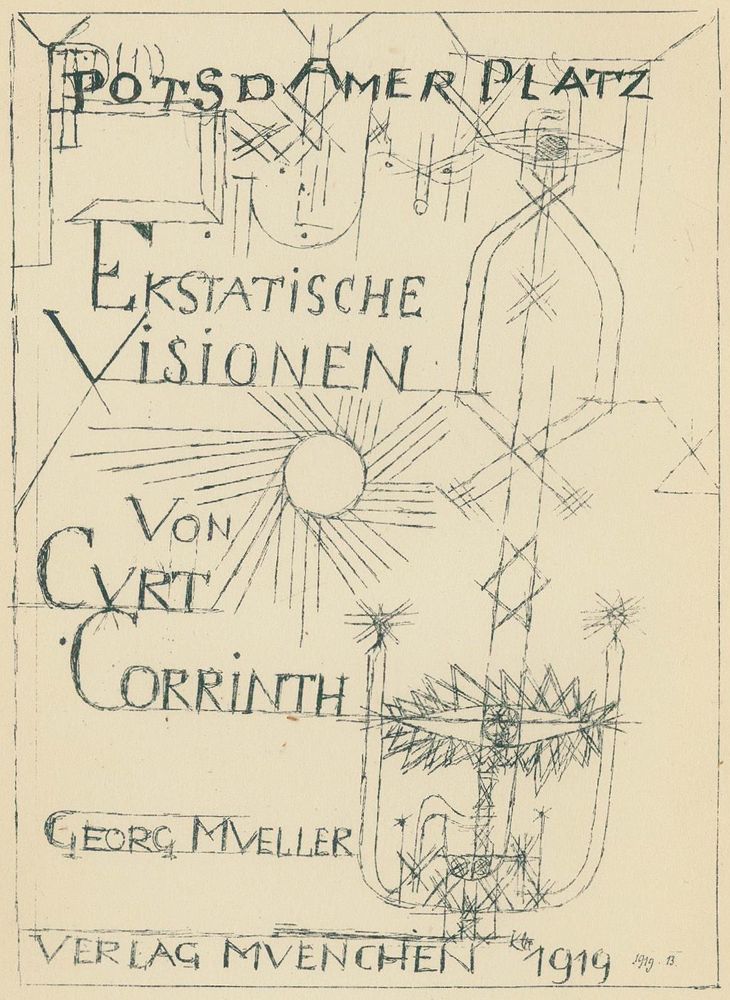 POTSDAMER PLATZ
EKSTATISCHE
VISIONEN
VON
CVRT
CORRINTH
GEORG MVELLER
VERLAG MVENCHEN Klee 1919 1919.13